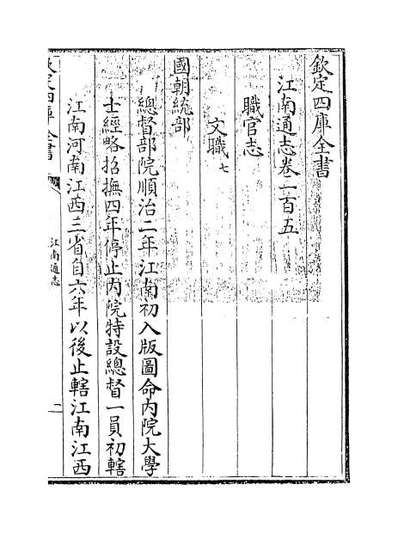 欽定四庫全書
江南通志卷一百五
職官志
文職七
國朝統部
總督部院順治二年江南初入版圖命内院大學
士經略招撫四年停止内院特設總督一員初轄
江南河南江西三省自六年以後止轄江南江西
欽定四庫全書
江南通志